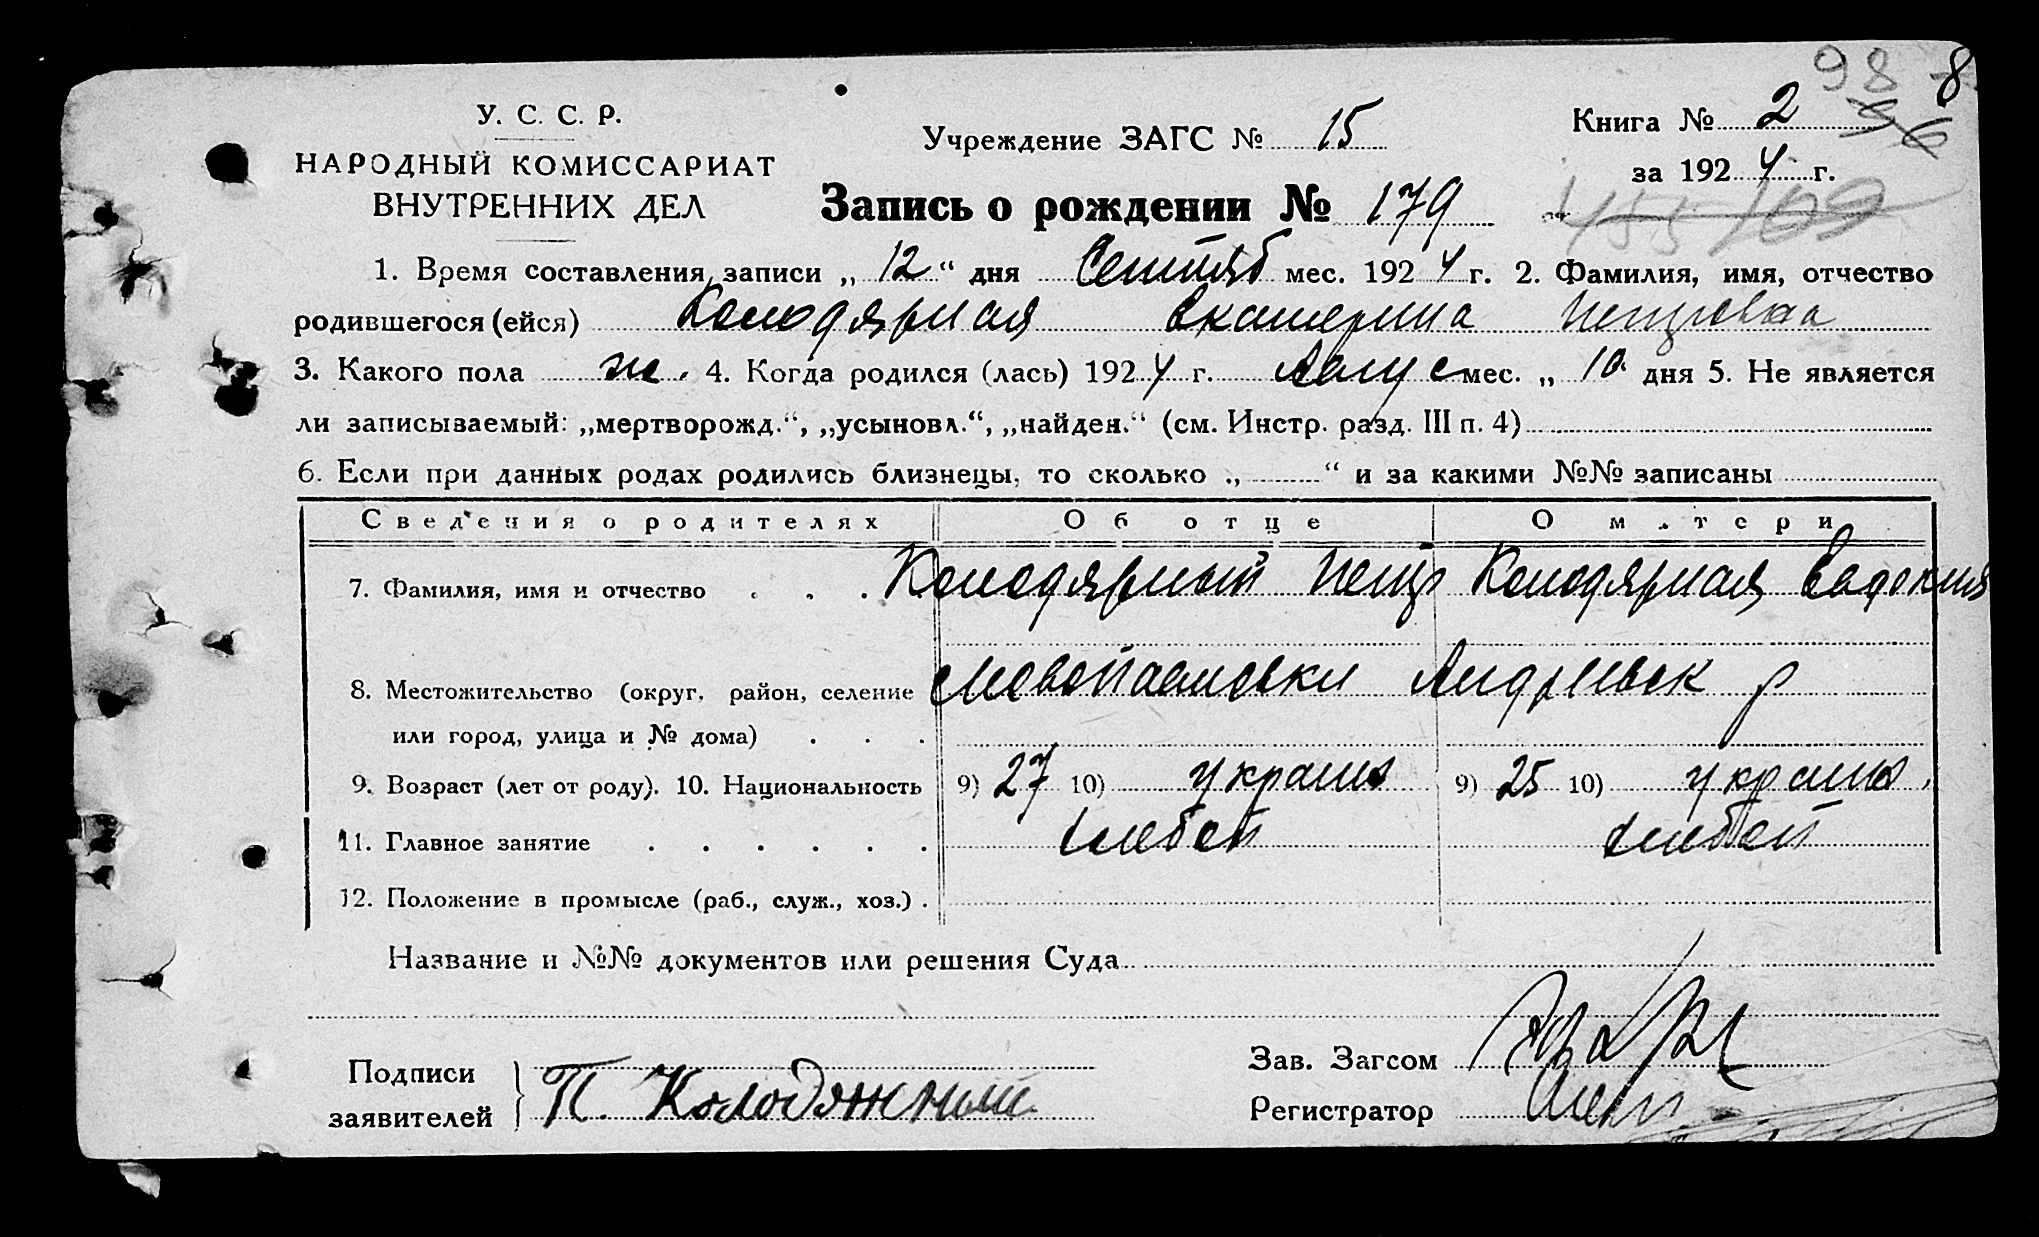 98 8
У. С. С. Р.
Учреждение ЗАГС № 15
Книга № 2
НАРОДНЫЙ КОМИССАРИАТ
ВНУТРЕННИХ ДЕЛ
за 1924 г.
Запись о рождении № 179
1. Время составления записи „ 12 “ дня Сентяб мес. 1924 г. 2. Фамилия, имя, отчество
родившегося (ейся) Колодяжная Екатерина Петровна
3. Какого пола ж. 4. Когда родился (лась) 1924 г. Авгус мес. „ 10 дня 5. Не является
ли записываемый: „мертворожд.“, „усыновл.“, „найден.“ (см. Инстр. разд. III п. 4)
6. Если при данных родах родились близнецы, то сколько „ “ и за какими №№ записаны
Сведения о родителях Об отце О матери
7. Фамилия, имя и отчество . . . Колодяжный Петр Колодяжная Евдокия
8. Местожительство (округ, район, селение
или город, улица и № дома) . . .
9. Возраст (лет от роду). 10. Национальность 9) 27 10) украин 9) 25 10) украин.
11. Главное занятие . . . . . . хлебоп хлебоп
12. Положение в промысле (раб., служ., хоз.) .
Название и №№ документов или решения Суда
Подписи
заявителей П. Колодяжный
Зав. Загсом
Регистратор